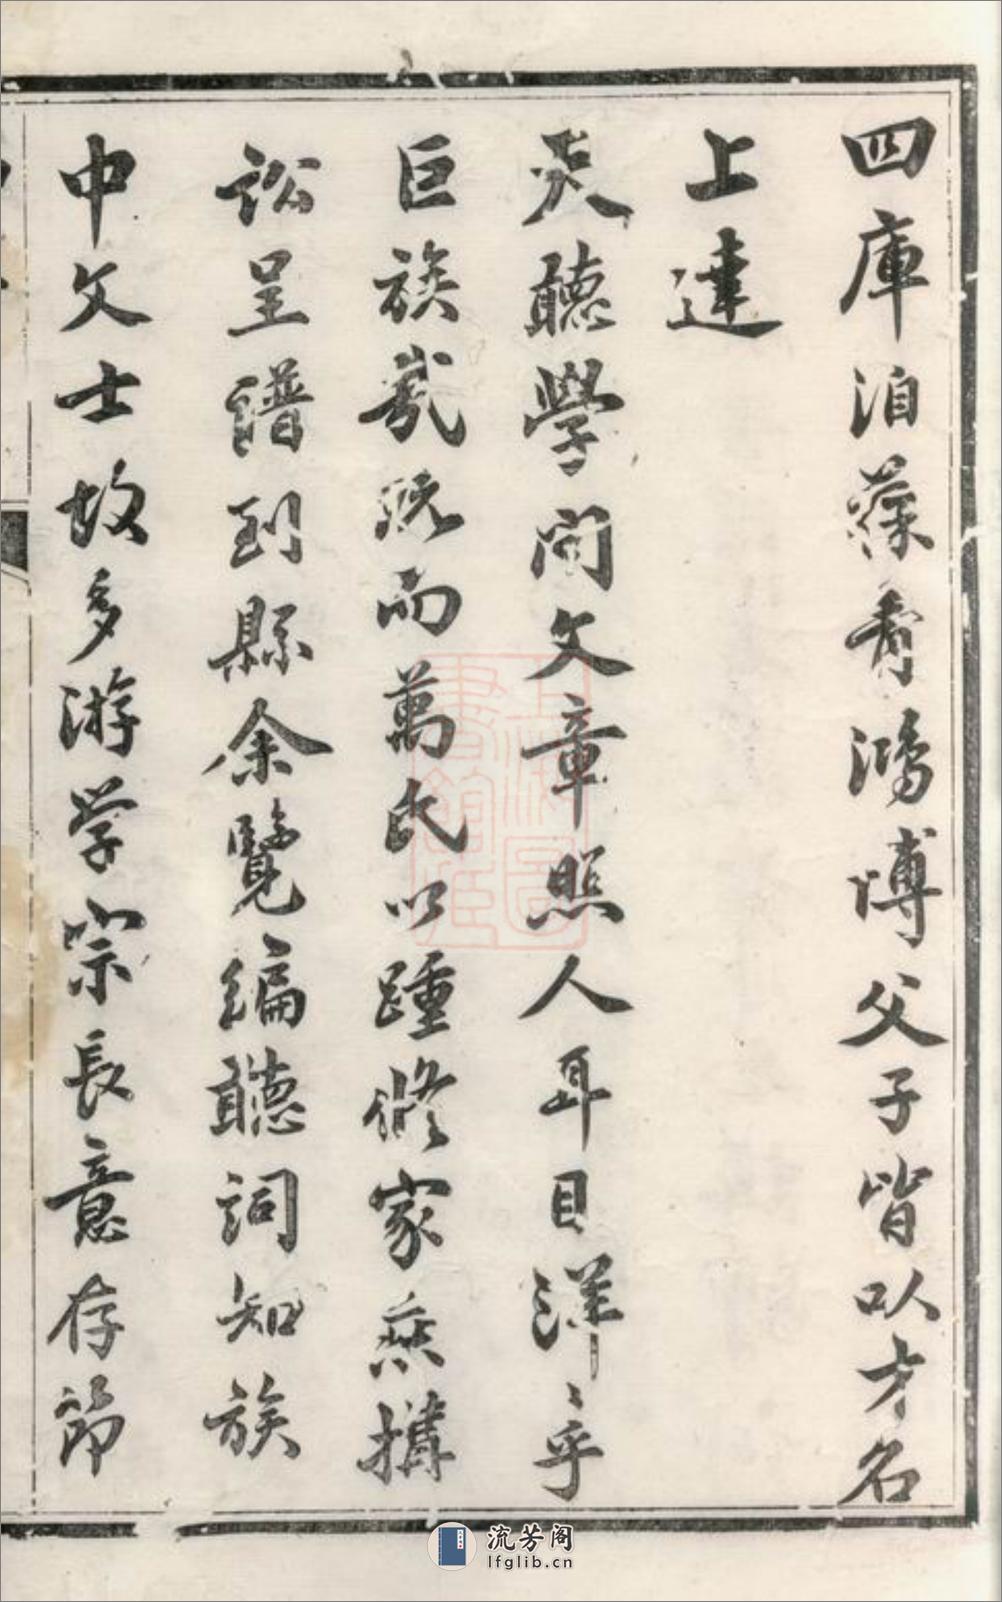 四庫洎蘓耇鴻博父子皆以才名
上達
天聽學問文章照人耳目洋〻乎
巨族哉既而萬氏以踵修家乘搆
訟呈譜到縣余覽編聽詞知族
中文士故多游学宗長意存節
上海圖書館藏
流芳阁
lfglib.cn